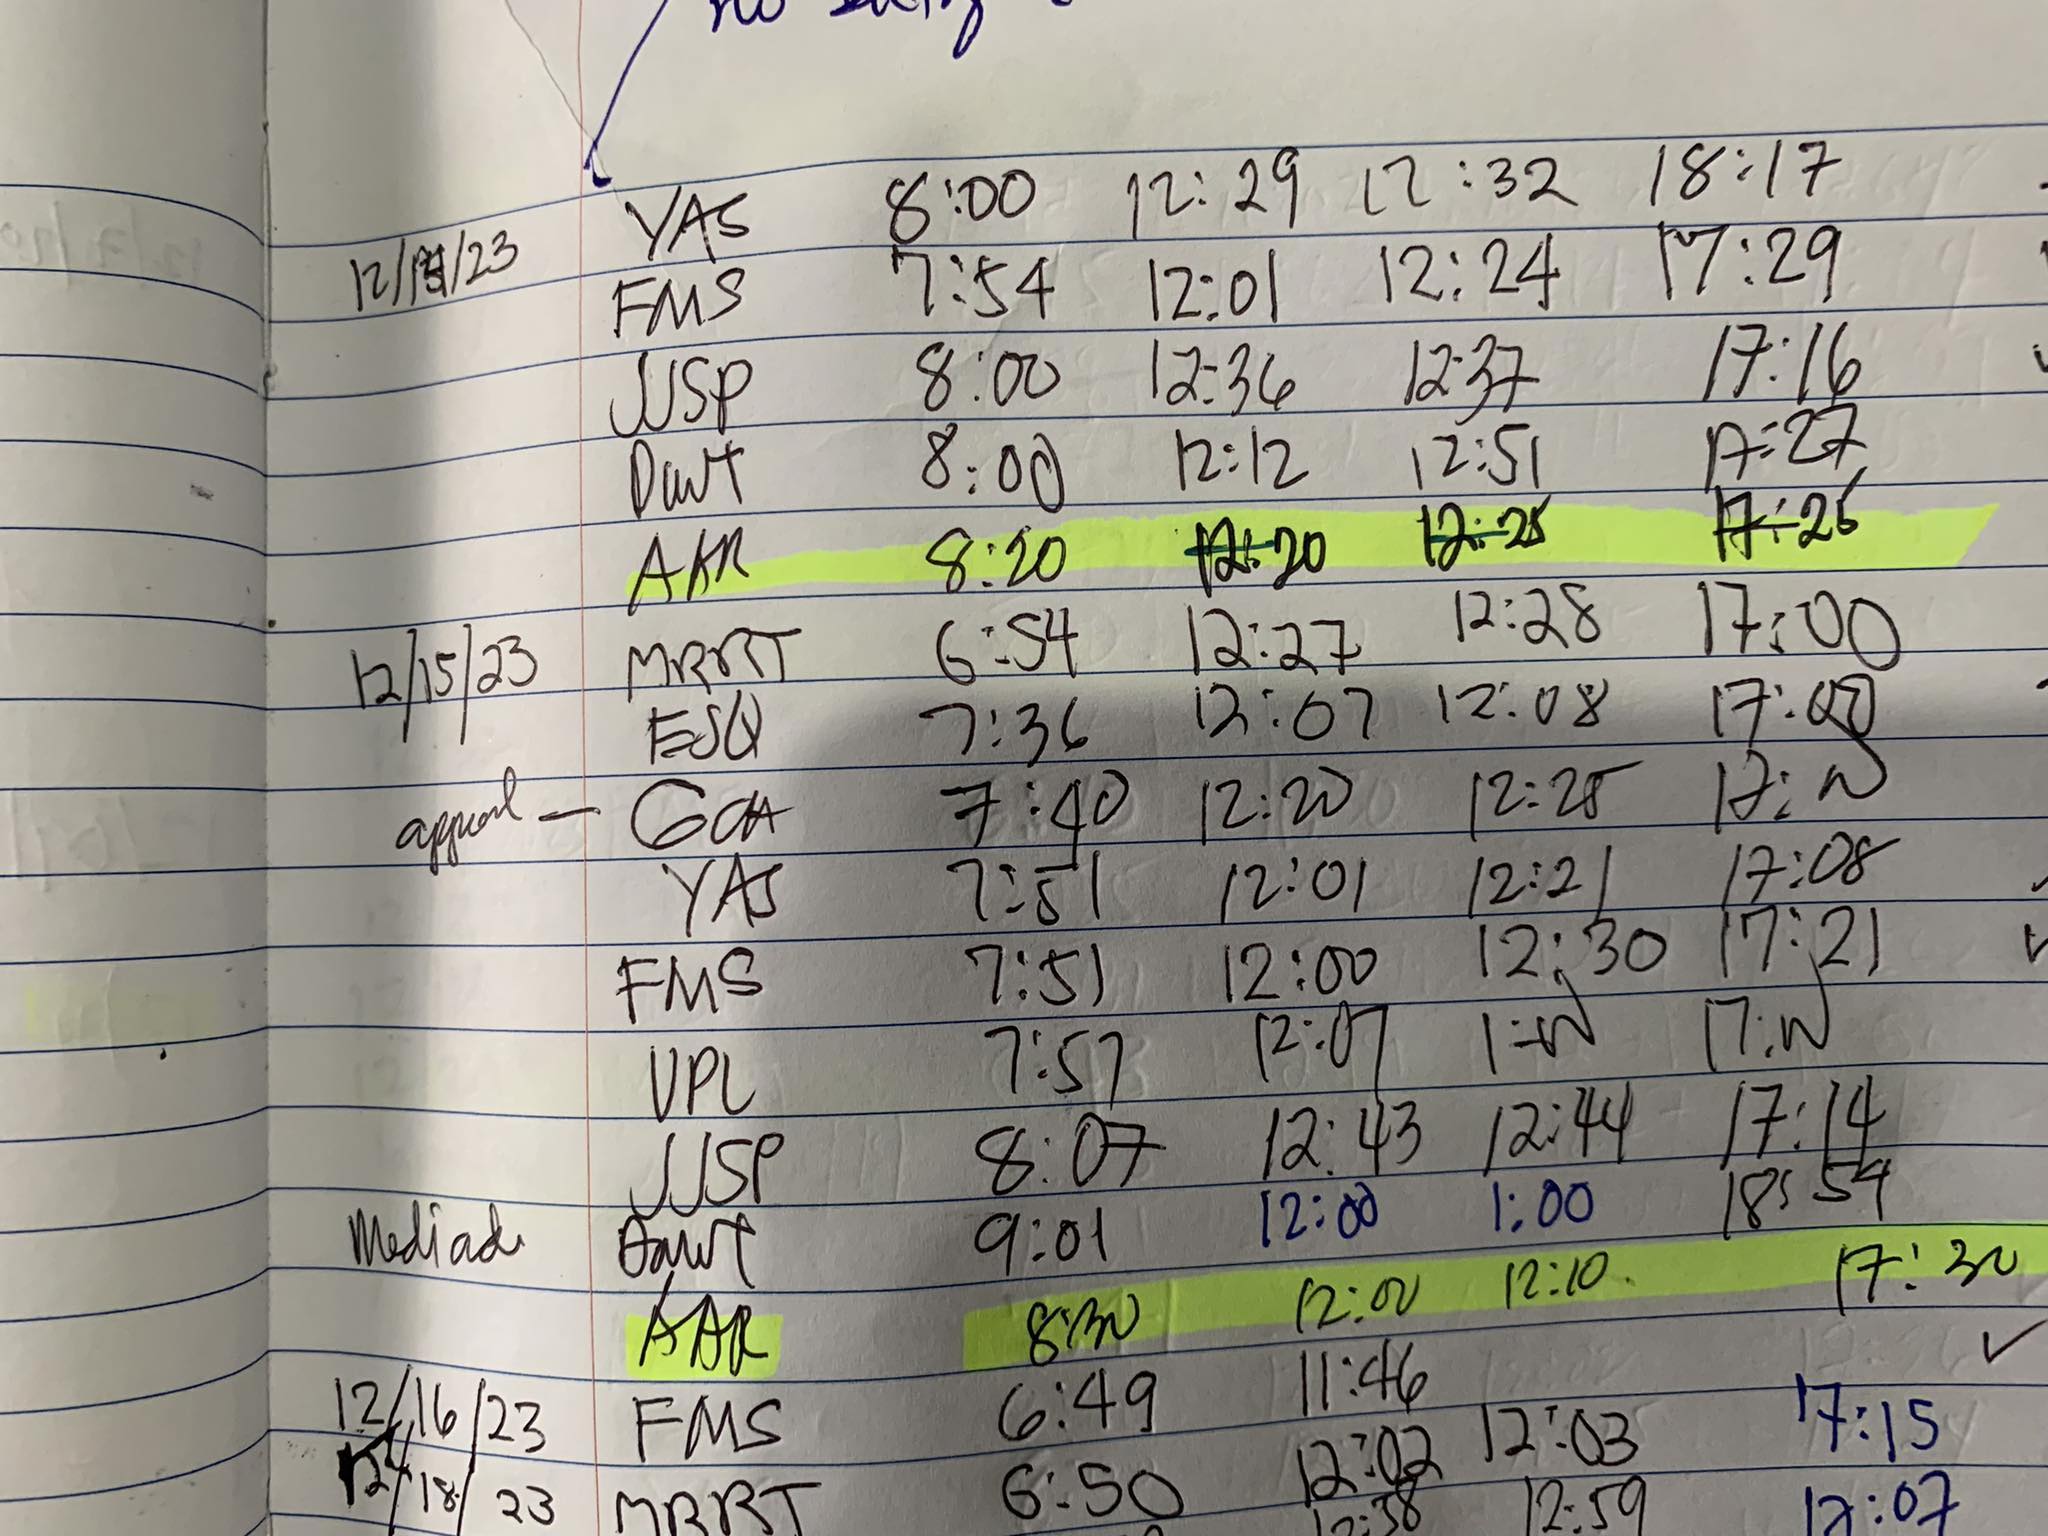 YAS 8:00 12:29 12:32 18:17
12/14/23 FMS 7:54 12:01 12:24 17:29
JJSP 8:00 12:36 12:37 17:16
DWT 8:00 12:12 12:51 17:27
AAR 8:20 12:20 12:25 17:25
12/15/23 MRRT 6:54 12:27 12:28 17:00
ESQ 7:36 12:07 12:08 17:00
GCA 7:40 12:20 12:25
YAS 7:51 12:01 12:21 17:08
FMS 7:51 12:00 12:30 17:21
VPL 7:57 12:07
JJSP 8:07 12:43 12:44 17:14
9:01 12:00 1:00 18:54
AAR 8:30 12:00 12:10 17:30
12/16/23 FMS 6:49 11:46
12/18/23 MRRT 6:50 12:02 12:03 17:15
12:58 12:59 17:07